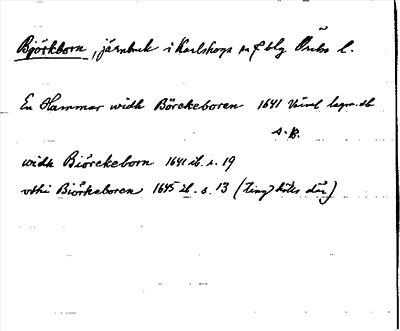 Björkborn, järnbruk i Karlskoga sn & blg Örebro l.
En Hammar widh Börckeboren 1641 Värml lagm.db
s. 18.
widh Biörckeborn 1641 ib. s. 19
vthi Biörkeboren 1645 ib. s. 13 (ting hölls där)